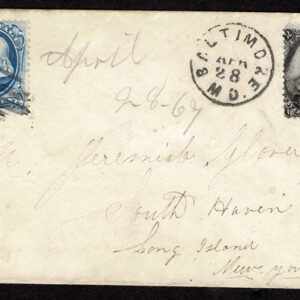 April
28-67
BALTIMORE
APR
28
MD.
Jeremiah Glover
South Haven
Long Island
New York